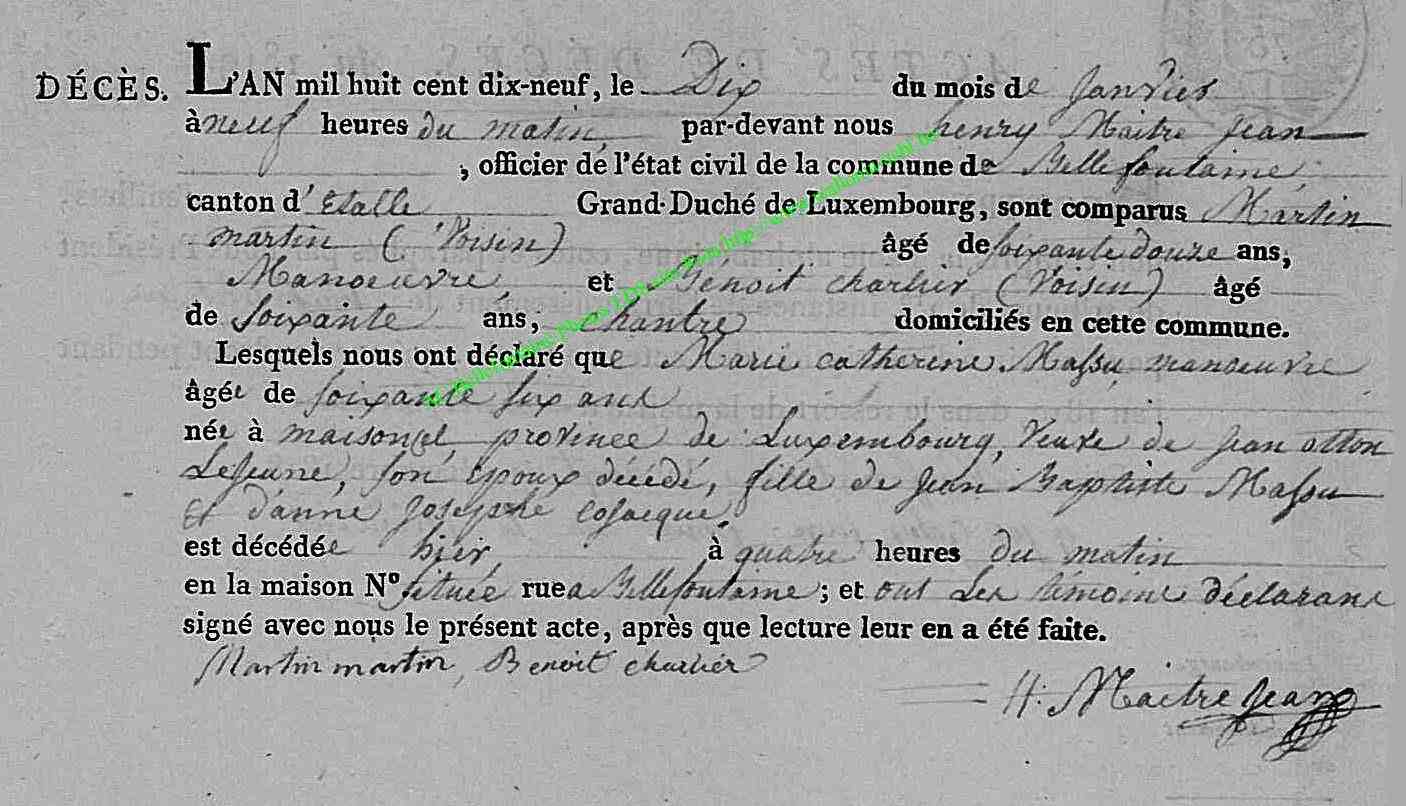 DÉCÈS. L'AN mil huit cent dix-neuf, le Dix du mois de Janvier
à neuf heures du matin, par-devant nous henry Maitre jean
, officier de l'état civil de la commune de Bellefontaine
canton d'Etalle Grand-Duché de Luxembourg, sont comparus Martin
martin (Voisin) âgé de soixante douze ans,
Manoeuvre, et Bénoit charlier (Voisin) âgé
de soixante ans, chantre domiciliés en cette commune.
Lesquels nous ont déclaré que Marie catherine Massu manoeuvre
âgée de soixante six ans
née à province de Luxembourg, Veuve de jean otton
Lejeune, son Epoux décédé, fille de jean Baptiste Massu
et d'anne josephe cosacque.
est décédée hier à quatre heures du matin
en la maison N° située rue a Bellefontaine; et ont les témoins déclarans
signé avec nous le présent acte, après que lecture leur en a été faite.
Martin martin, Benoit charlier
H. Maitre jean